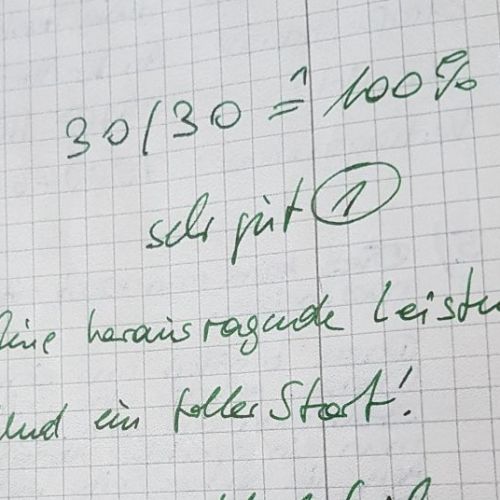 30/30 ≙ 100%
sehr gut 1
Eine herausragende Leistu
und ein toller Start!